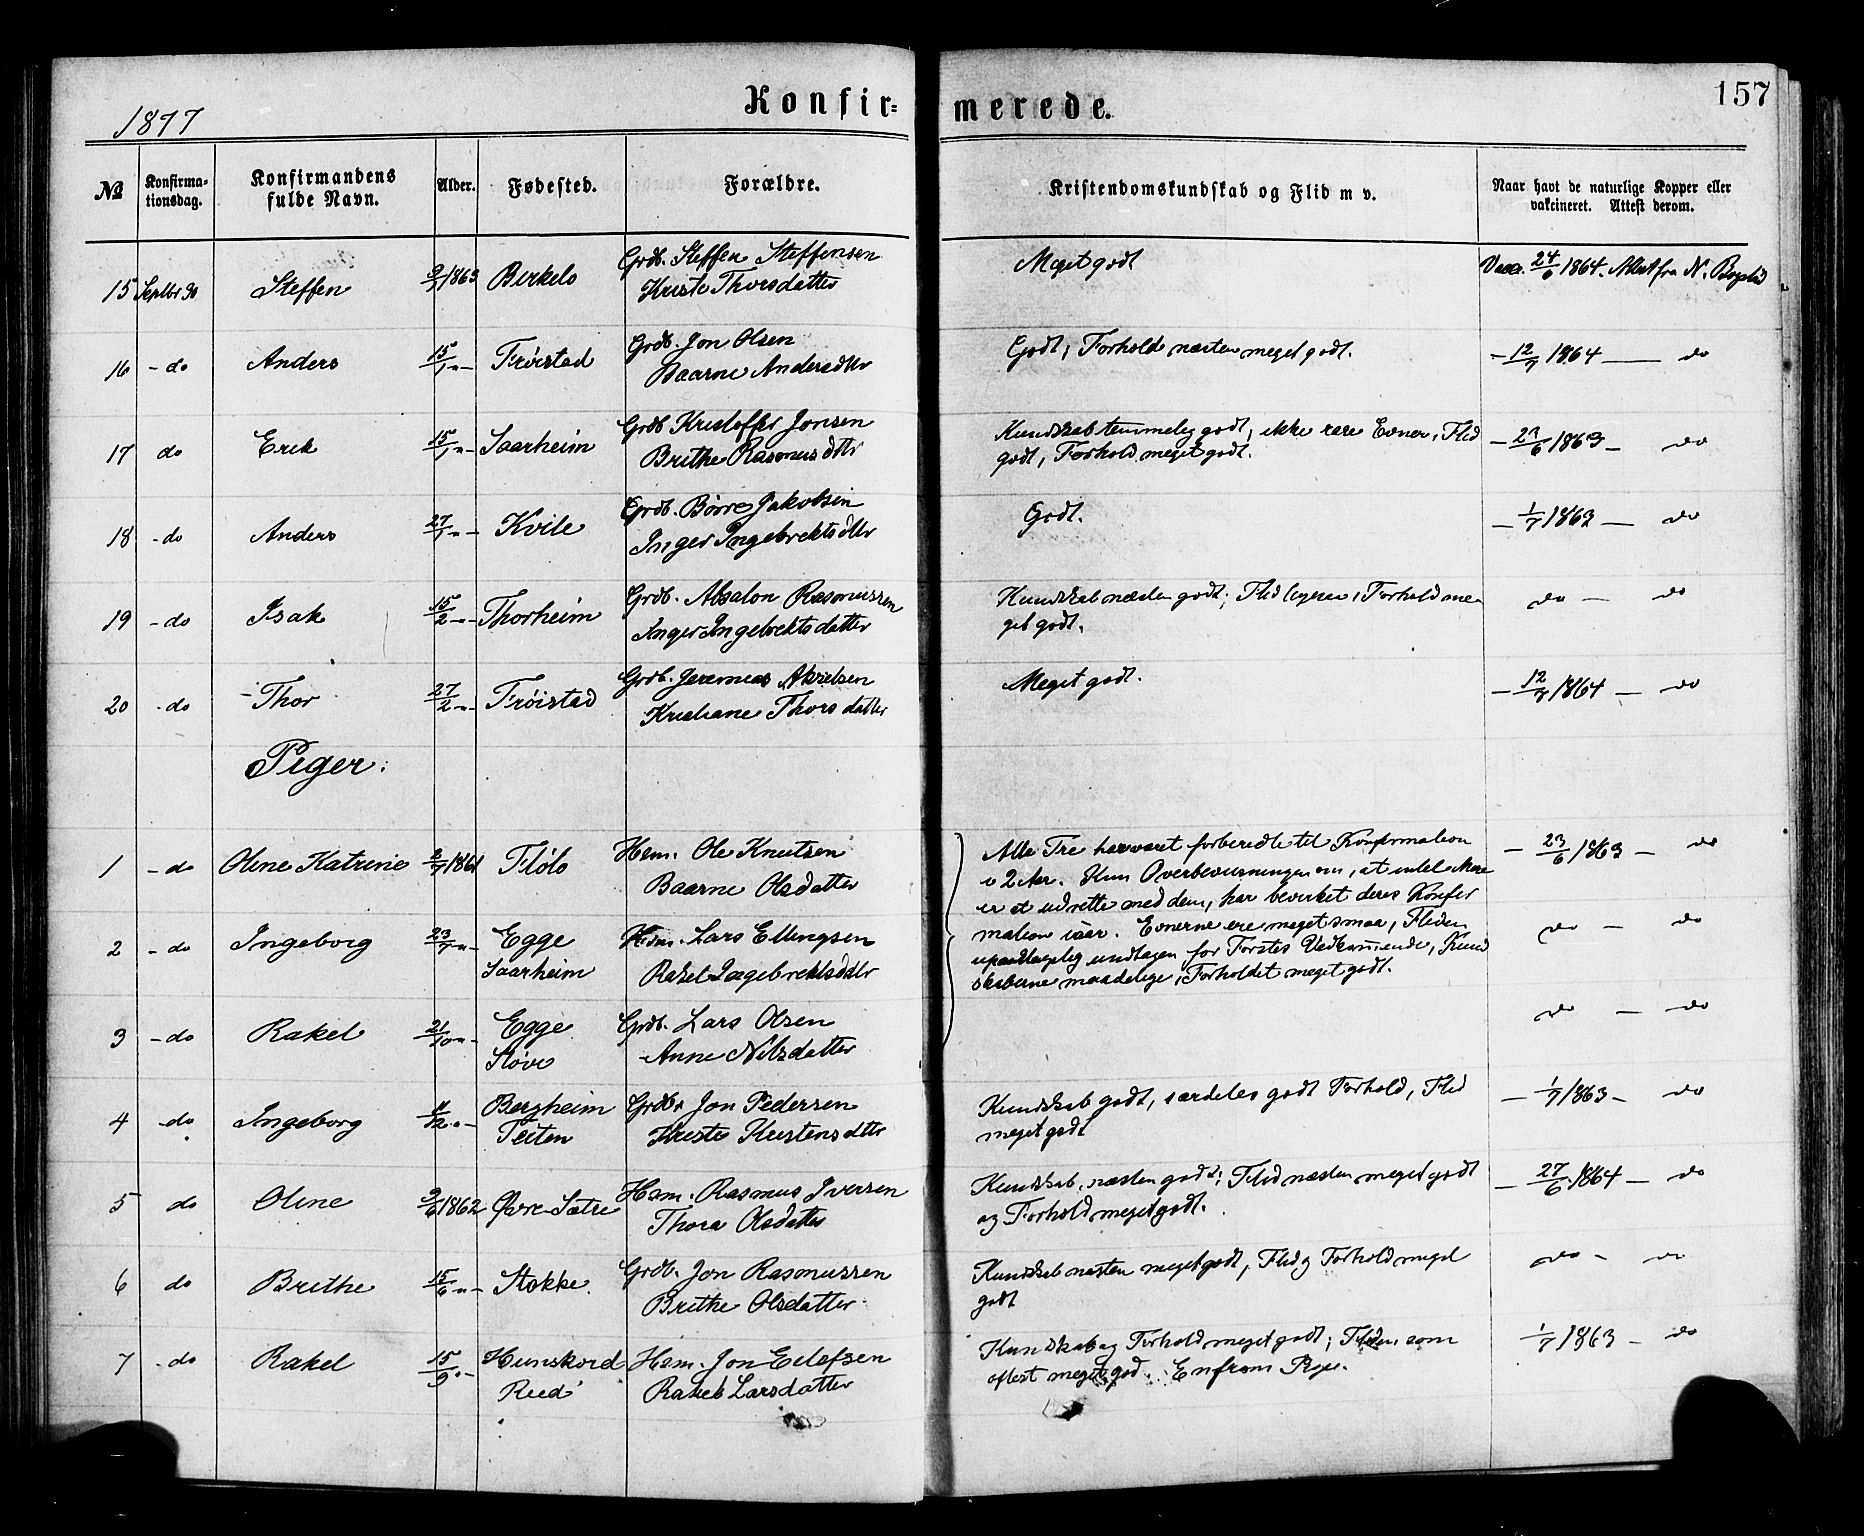 Konfir=
merede.
157
1877
№
Konfirma-
tionsdag.
Konfirmandens
fulde Navn.
Alder.
Fødested.
Forældre.
Kristendomskundskab og Flid m v.
Naar havt de naturlige Kopper eller
vakcineret. Attest derom.
15 Septbr 30 Steffen 1863 Birkelo Grdb. Steffen Steffensen Meget godt Vacc. 24/6 1864. Attest fra N.
Kristi Thorsdatter
16 - do Anders 15/1 " - Frøistad Grdb. Jon Olsen Godt; Forhold næsten meget godt. - 12/7 1864 — do
Baarne Andersdttr
17 do Erik 15/1 " - Saarheim Grdb Kristoffer Jonsen Kundskab temmelig godt; ikke rare Evner, Flid - 23/6 1863 - do
Brithe Rasmusdttr godt, Forhold meget godt.
18 - do Anders 27/1 " - Kvile Grdb. Børre Jakobsen Godt. - 1/7 1863 — do
Inger Ingebrektsdttr
19 - do Isak 15/2 " - Thorheim Grdb. Absalon Rasmussen Kundskab næsten godt; Flid ligesaa; Forhold me- do — do
Inger Ingebrektsdatter get godt.
20 - do Thor 27/2 " - Frøistad Grdb. Jeremias Akselsen Meget godt. - 12/7 1864 — do
Kristiane Thorsdatter
Piger:
1 - do Oline Katrine 2/7 1861 Flølo Hsm. Ole Knutsen Alle Tre har været forberedte til Konfirmation - 23/6 1863 - do
Baarne Olsdatter i 2 Aar. Kun Overbevisningen om, at intet Mere
er at udrette med dem, har bevirket deres Konfir
2 - do Ingeborg 23/7 " - Egge Hsm. Lars Ellingsen mation iaar. Evnerne ere meget smaa, Fliden do — do
Saarheim Rakel Ingebrektsdttr upaaklagelig undtagen for Førstes Vedkommende, Kund
skaberne maadelige, Forholdet meget godt.
3 - do Rakel 21/10 " - Egge Grdb. Lars Olsen do — do
Støve Anne Nilsdatter
4 - do Ingeborg Bergheim Grdbr Jon Pedersen Kundskab godt, særdeles godt Forhold, Flid - 1/7 1863 - do
Teiten Kristi Kristensdttr meget godt
5 do Oline 1862 Øvre-Sætre Hsm. Rasmus Iversen Kundskab næsten godt; Flid næsten meget godt - 27/6 1864 - do
Thora Olsdatter og Forhold meget godt.
6 do Brithe 15/6 " - Stokke. Grdb. Jon Rasmussen Kundskab næsten meget godt, Flid og Forhold meget do - do
Brithe Olsdatter godt
7 - do Rakel 15/9 " - Hunskord Hsm. Jon Eilefsen Kundskab og Forhold meget godt; Fliden som 1/7 1863 - do
Reed Rakel Larsdatter oftest meget god. En from Pige.